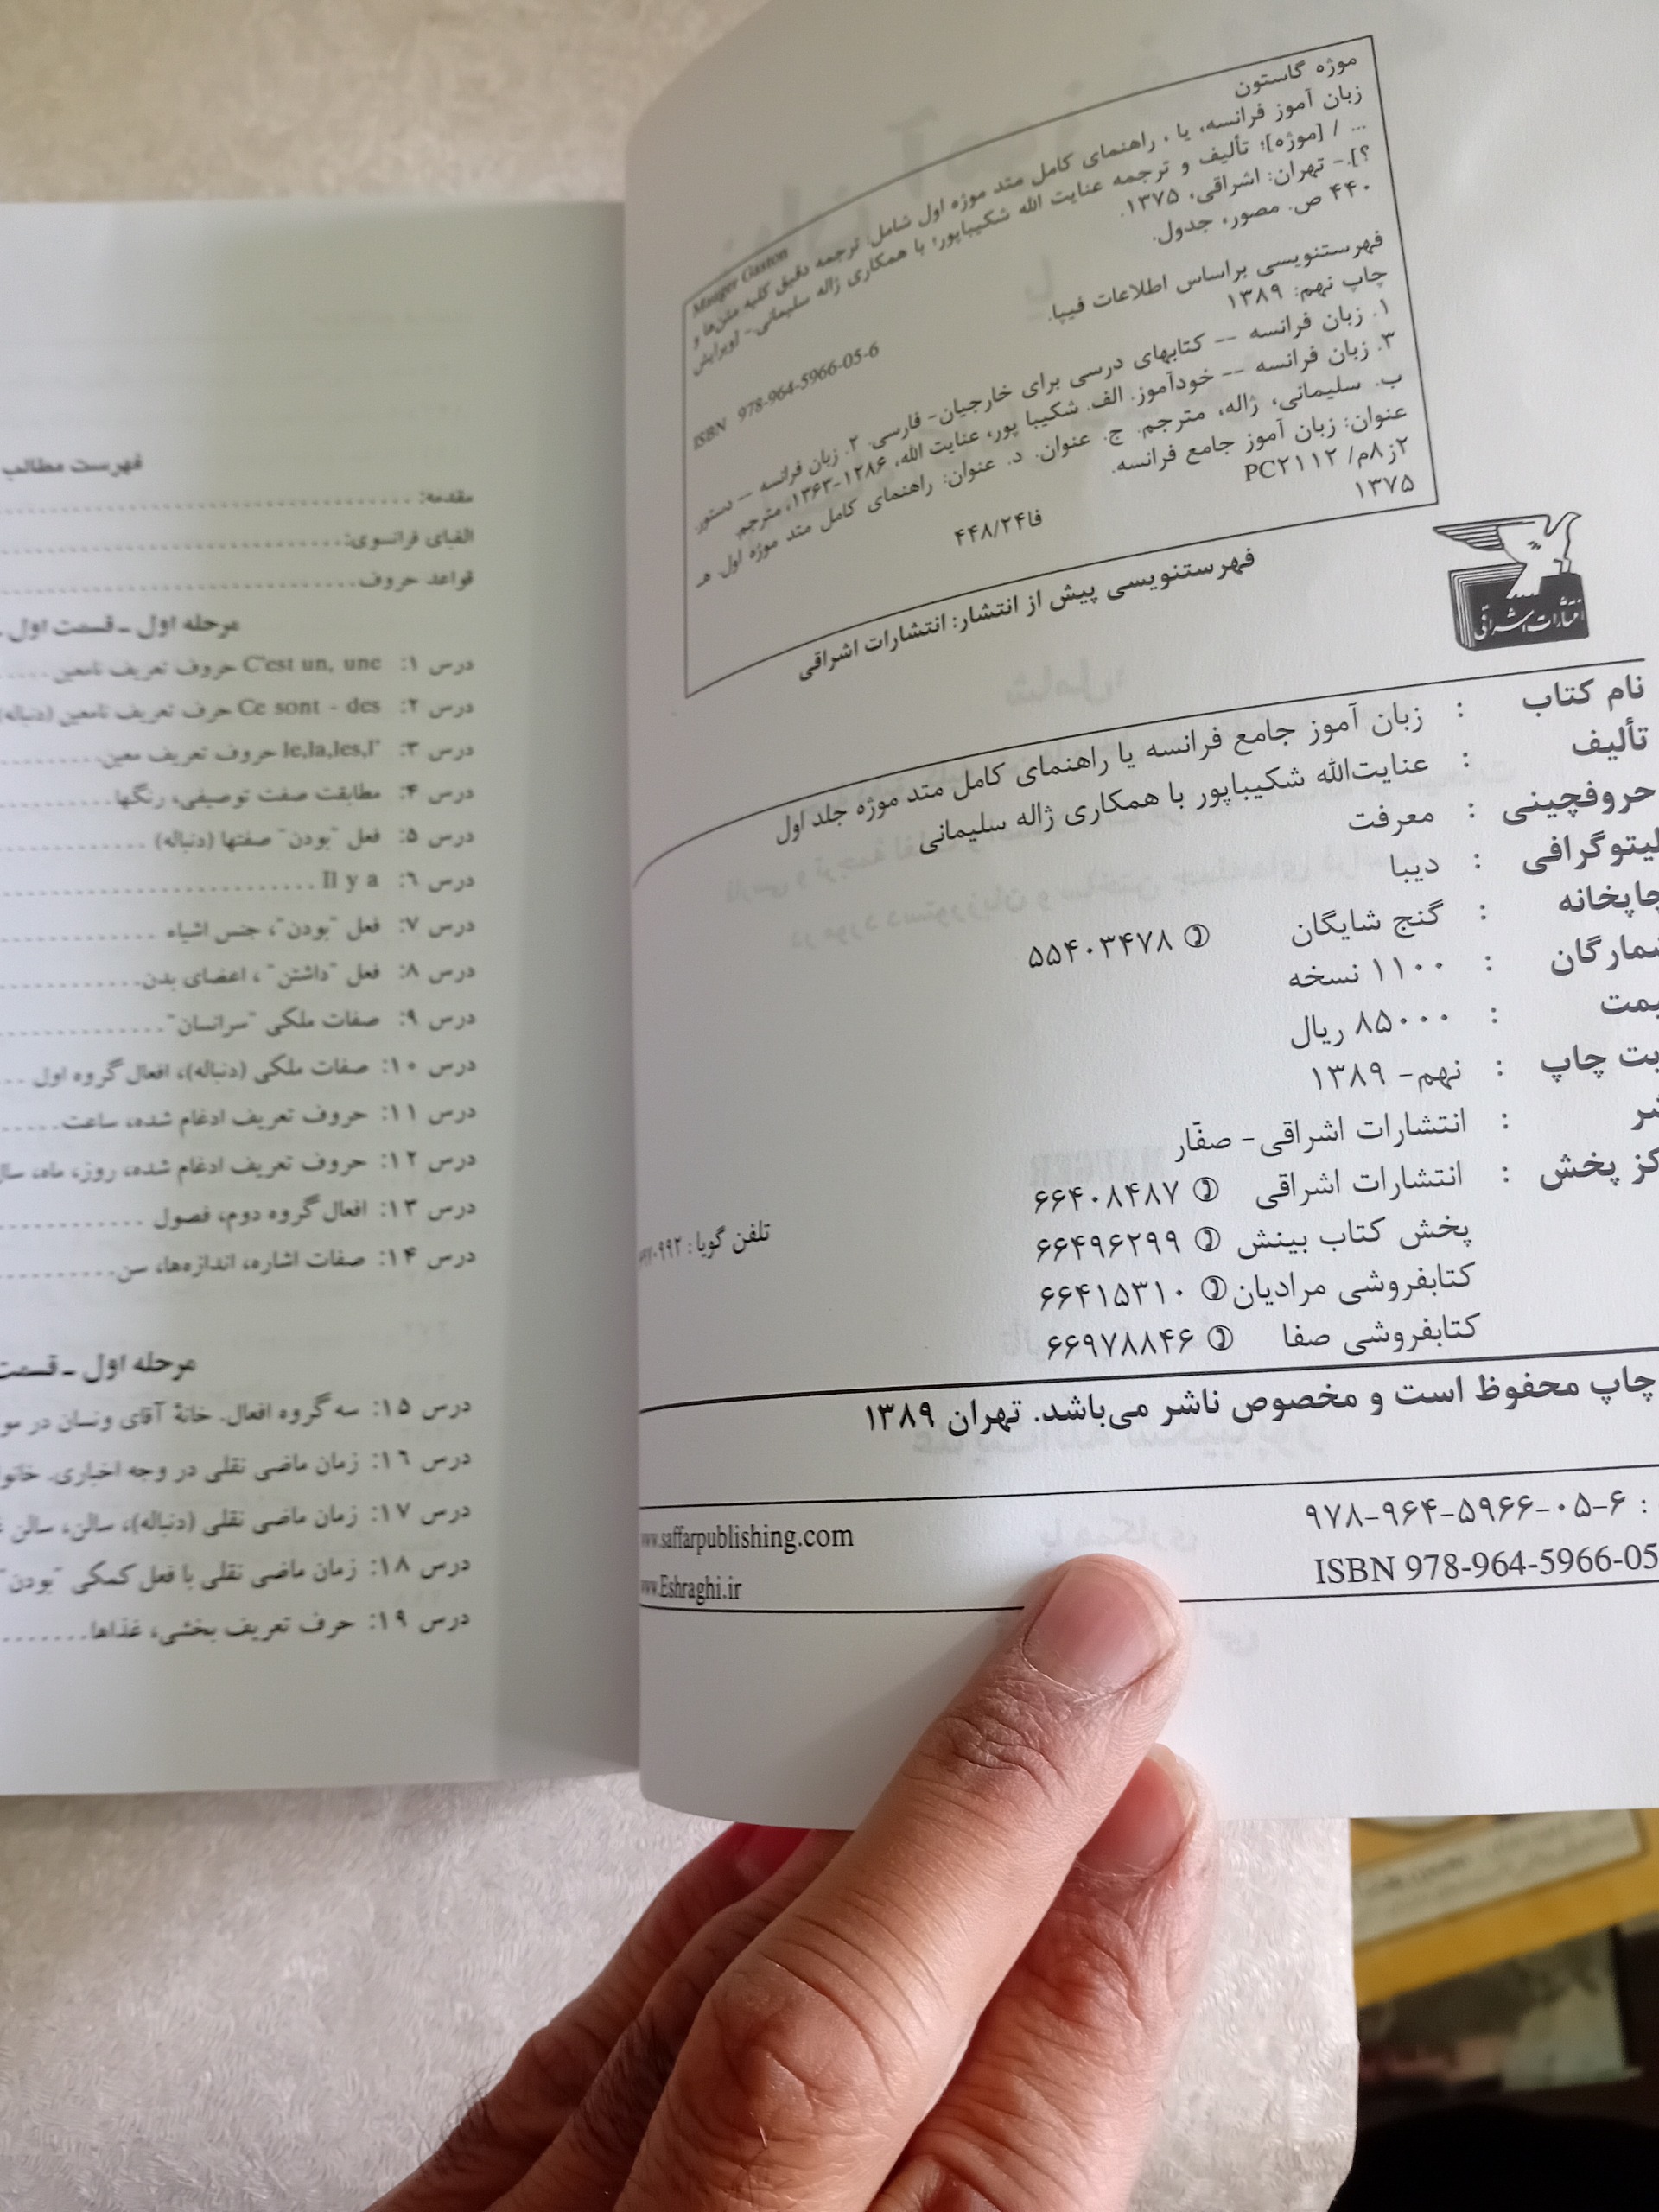 موژه گاستون
Mauger Gaston
زبان آموز فرانسه، یا ، راهنمای کامل متد موژه اول شامل: ترجمه دقیق کلیه متن‌ها و
... / [موژه]؛ تألیف و ترجمه عنایت الله شکیباپور؛ با همکاری ژاله سلیمانی.- [ویرایش
؟].- تهران: اشراقی، ۱۳۷۵.
۴۴۰ ص. مصور، جدول.
ISBN 978-964-5966-05-6
فهرستنویسی براساس اطلاعات فیپا.
چاپ نهم: ۱۳۸۹
۱. زبان فرانسه -- کتابهای درسی برای خارجیان- فارسی. ۲. زبان فرانسه -- دستور.
۳. زبان فرانسه -- خودآموز. الف. شکیبا پور، عنایت الله، ۱۲۸۶-۱۳۶۳، مترجم.
ب. سلیمانی، ژاله، مترجم. ج. عنوان. د. عنوان: راهنمای کامل متد موژه اول. هـ
عنوان: زبان آموز جامع فرانسه.
۲ز۸م/ PC۲۱۱۲
فا۴۴۸/۲۴
۱۳۷۵
فهرستنویسی پیش از انتشار: انتشارات اشراقی
انتشارات اشراقی
نام کتاب : زبان آموز جامع فرانسه یا راهنمای کامل متد موژه جلد اول
تألیف : عنایت‌الله شکیباپور با همکاری ژاله سلیمانی
حروفچینی : معرفت
لیتوگرافی : دیبا
چاپخانه : گنج شایگان ✆ ۵۵۴۰۳۴۷۸
شمارگان : ۱۱۰۰ نسخه
یمت : ۸۵۰۰۰ ریال
بت چاپ : نهم- ۱۳۸۹
شر : انتشارات اشراقی- صفّار
کز پخش : انتشارات اشراقی ✆ ۶۶۴۰۸۴۸۷
پخش کتاب بینش ✆ ۶۶۴۹۶۲۹۹
تلفن گویا :
کتابفروشی مرادیان ✆ ۶۶۴۱۵۳۱۰
کتابفروشی صفا ✆ ۶۶۹۷۸۸۴۶
چاپ محفوظ است و مخصوص ناشر می‌باشد. تهران ۱۳۸۹
: ۹۷۸-۹۶۴-۵۹۶۶-۰۵-۶
www.saffarpublishing.com
ISBN 978-964-5966-05
www.Eshraghi.ir
فهرست مطالب
مقدمه: ..............................
الفبای فرانسوی: ..............................
قواعد حروف ..............................
مرحله اول ـ قسمت اول
درس ۱: C'est un, une حروف تعریف نامعین .....
درس ۲: Ce sont - des حرف تعریف نامعین (دنباله)
درس ۳: le,la,les,l' حروف تعریف معین ..........
درس ۴: مطابقت صفت توصیفی، رنگها ..........
درس ۵: فعل "بودن" صفتها (دنباله) ..........
درس ۶: Il y a ....................
درس ۷: فعل "بودن"، جنس اشیاء ..........
درس ۸: فعل "داشتن" ، اعضای بدن ..........
درس ۹: صفات ملکی "سرانسان" ..........
درس ۱۰: صفات ملکی (دنباله)، افعال گروه اول ...
درس ۱۱: حروف تعریف ادغام شده، ساعت .....
درس ۱۲: حروف تعریف ادغام شده، روز، ماه، سال
درس ۱۳: افعال گروه دوم، فصول ..........
درس ۱۴: صفات اشاره، اندازه‌ها، سن ..........
مرحله اول ـ قسمت
درس ۱۵: سه گروه افعال. خانهٔ آقای ونسان در مو
درس ۱۶: زمان ماضی نقلی در وجه اخباری. خانوا
درس ۱۷: زمان ماضی نقلی (دنباله)، سالن، سالن
درس ۱۸: زمان ماضی نقلی با فعل کمکی "بودن"
درس ۱۹: حرف تعریف بخشی، غذاها ........